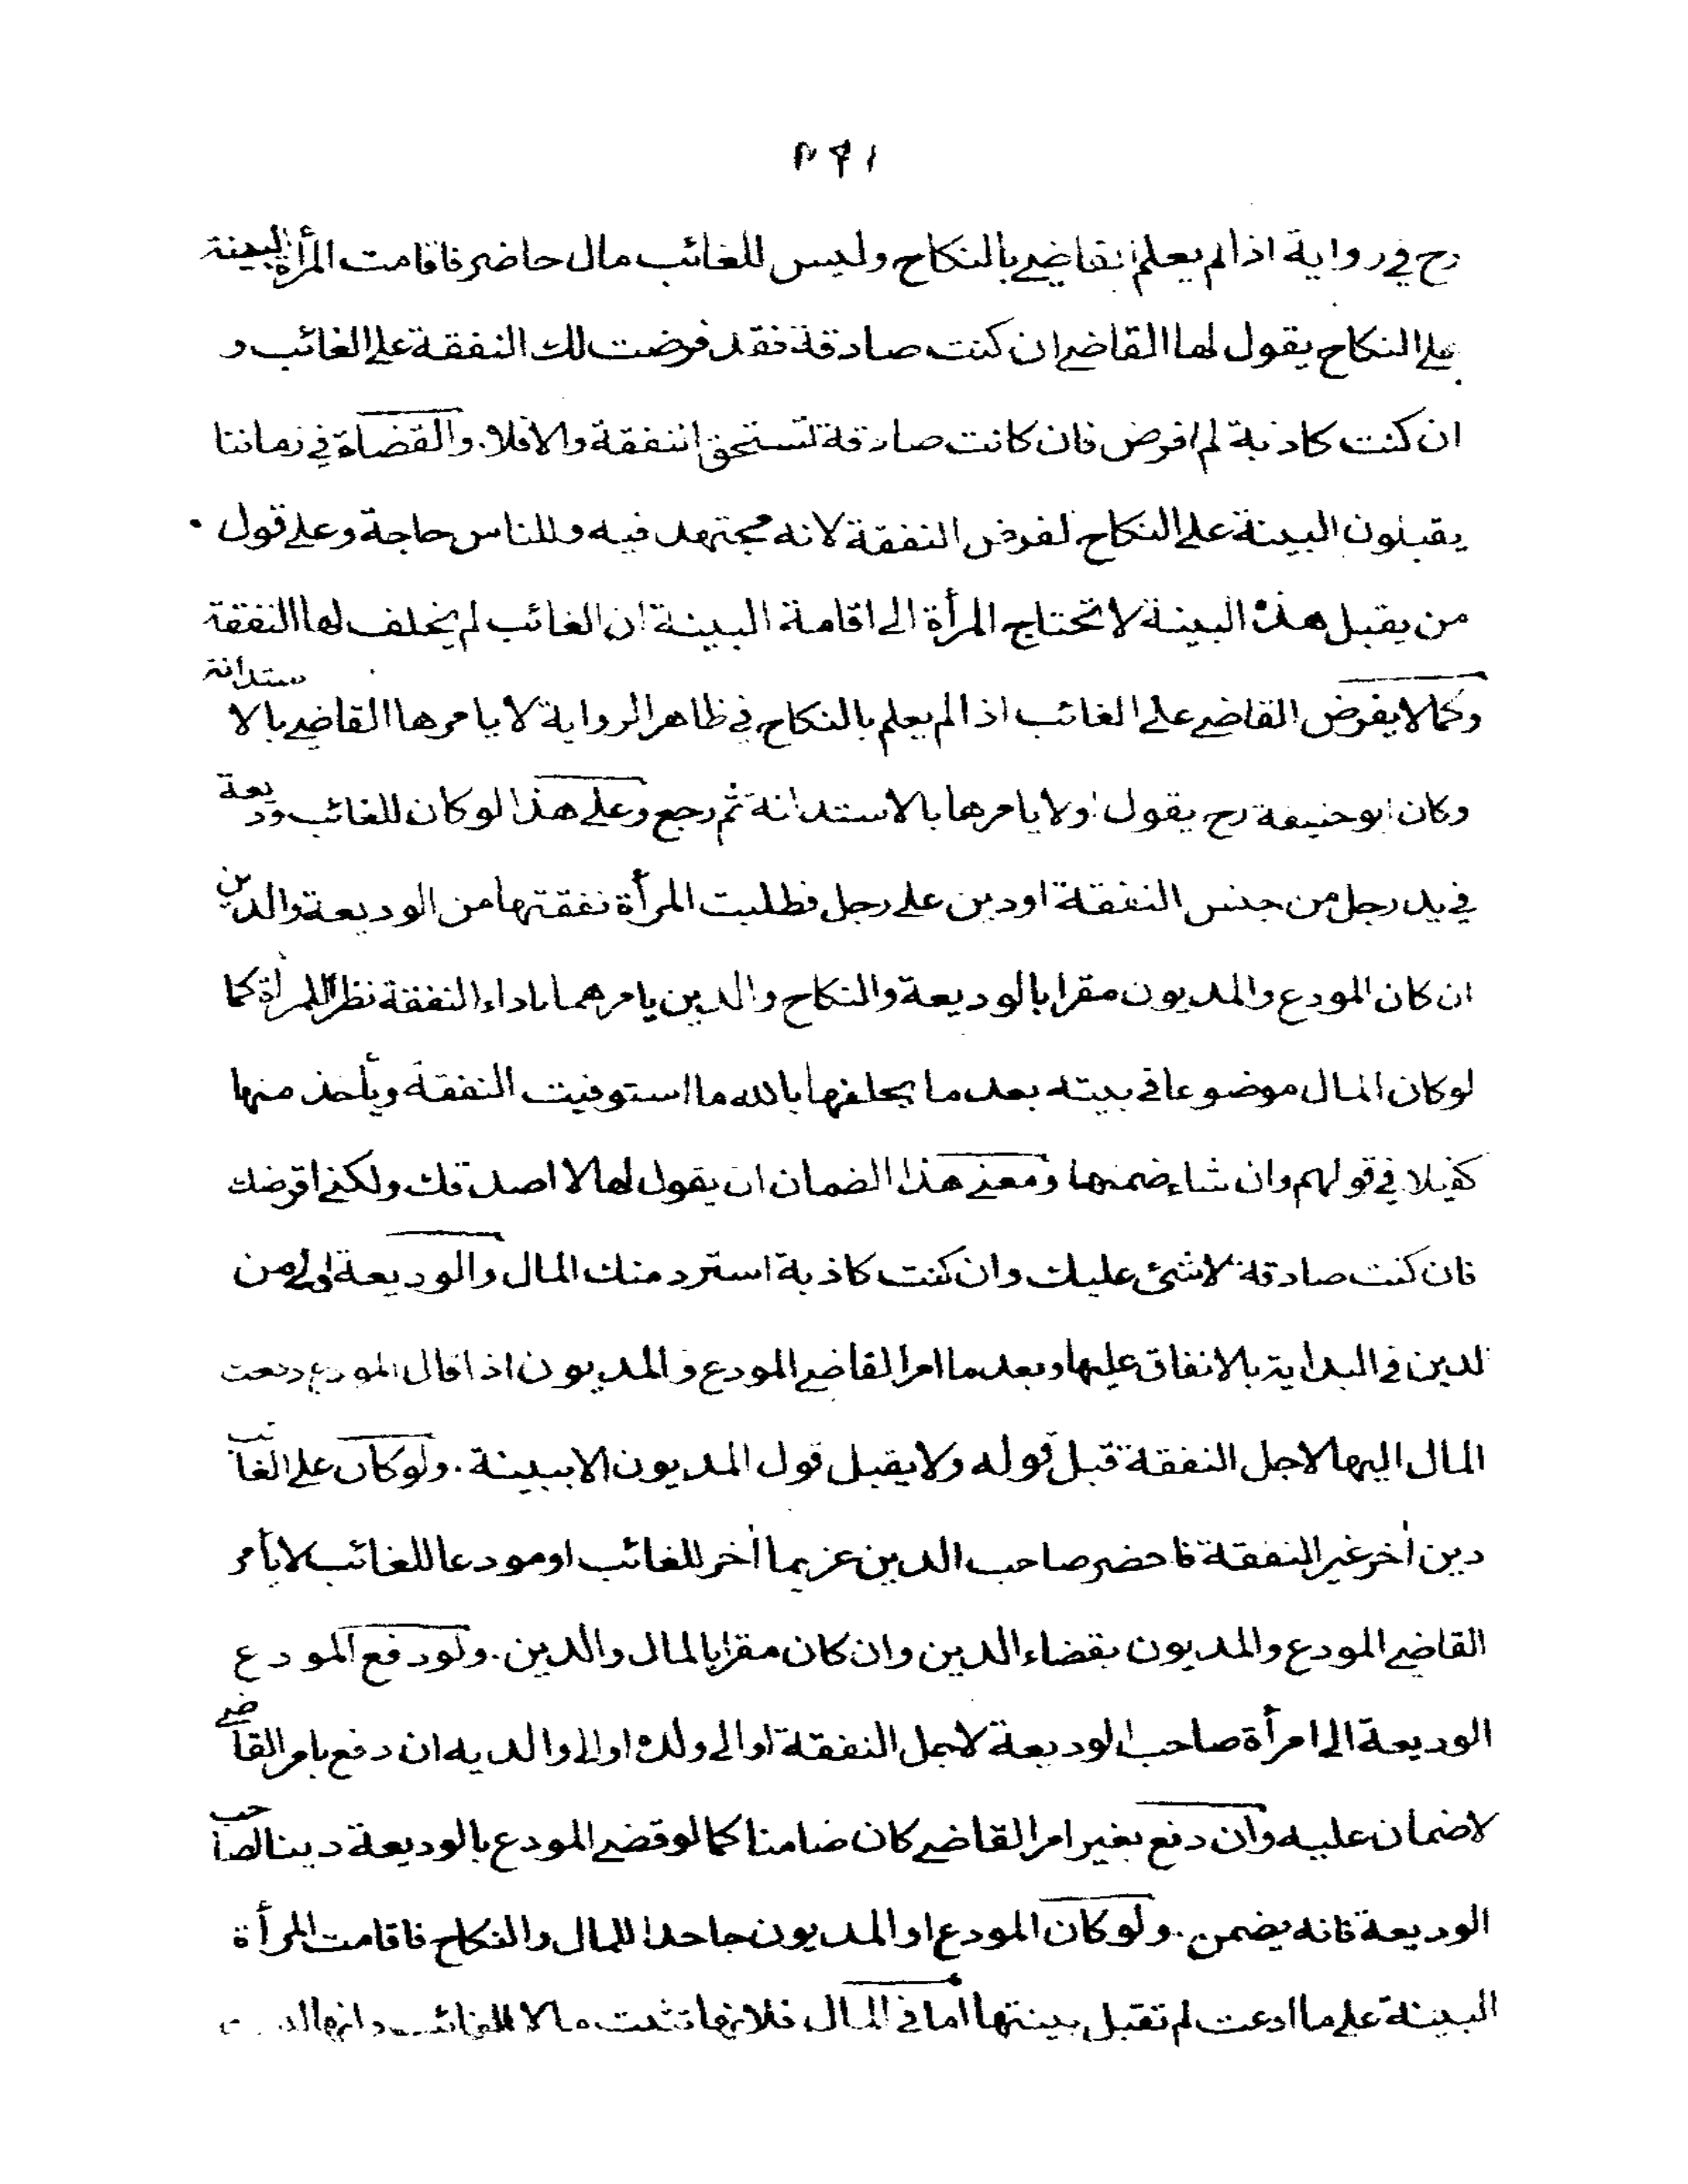 ۴۹۱
رح في رواية اذا لم يعلم القاضي بالنكاح وليس للغائب مال حاضر فاقامت المرأة البينة
على النكاح يقول لها القاضي ان كنت صادقة فقد فرضت لك النفقة على الغائب و
ان كنت كاذبة لم افرض فان كانت صادقة تستحق النفقة والا فلا. والقضاة في زماننا
يقبلون البينة على النكاح لفرض النفقة لانه مجتهد فيه وللناس حاجة وعلى قول
من يقبل هذه البينة لا تحتاج المرأة الى اقامة البينة ان الغائب لم يخلف لها النفقة
وكما لا يفرض القاضي على الغائب اذا لم يعلم بالنكاح في ظاهر الرواية لا يامرها القاضي بالاستدانة
وكان ابو حنيفة رح يقول اولا يامرها بالاستدانة ثم رجع وعلى هذا لو كان للغائب وديعة
في يد رجل من جنس النفقة او دين على رجل فطلبت المرأة نفقتها من الوديعة والدين
ان كان المودع والمديون مقرا بالوديعة والنكاح والدين يامرهما باداء النفقة نظرا للمرأة كما
لو كان المال موضوعا في بيته بعد ما يحلفها بالله ما استوفيت النفقة ويأخذ منها
كفيلا في قولهم وان شاء ضمنها ومعنى هذا الضمان ان يقول لها لا اصدقك ولكني اقرضك
فان كنت صادقة لا شئ عليك وان كنت كاذبة استرد منك المال والوديعة اولى من
الدين في البداية بالانفاق عليها وبعد ما امر القاضي المودع والمديون اذا قال المودع دفعت
المال اليها لاجل النفقة قبل قوله ولا يقبل قول المديون الا ببينة. ولو كان على الغائب
دين أخر غير النفقة فاحضر صاحب الدين غريما أخر للغائب او مودعا للغائب لا يأمر
القاضي المودع والمديون بقضاء الدين وان كان مقرا بالمال والدين. ولو دفع المودع
الوديعة الى امرأة صاحب الوديعة لاجل النفقة او الى ولده او الى والديه ان دفع بامر القاضي
لا ضمان عليه وان دفع بغير امر القاضي كان ضامنا كما لو قضى المودع بالوديعة دينا لصاحب
الوديعة فانه يضمن. ولو كان المودع او المديون جاحدا للمال والنكاح فاقامت المرأة
البينة على ما ادعت لم تقبل بينتها اما في المال فلانها تثبت مالا للغائب وانها